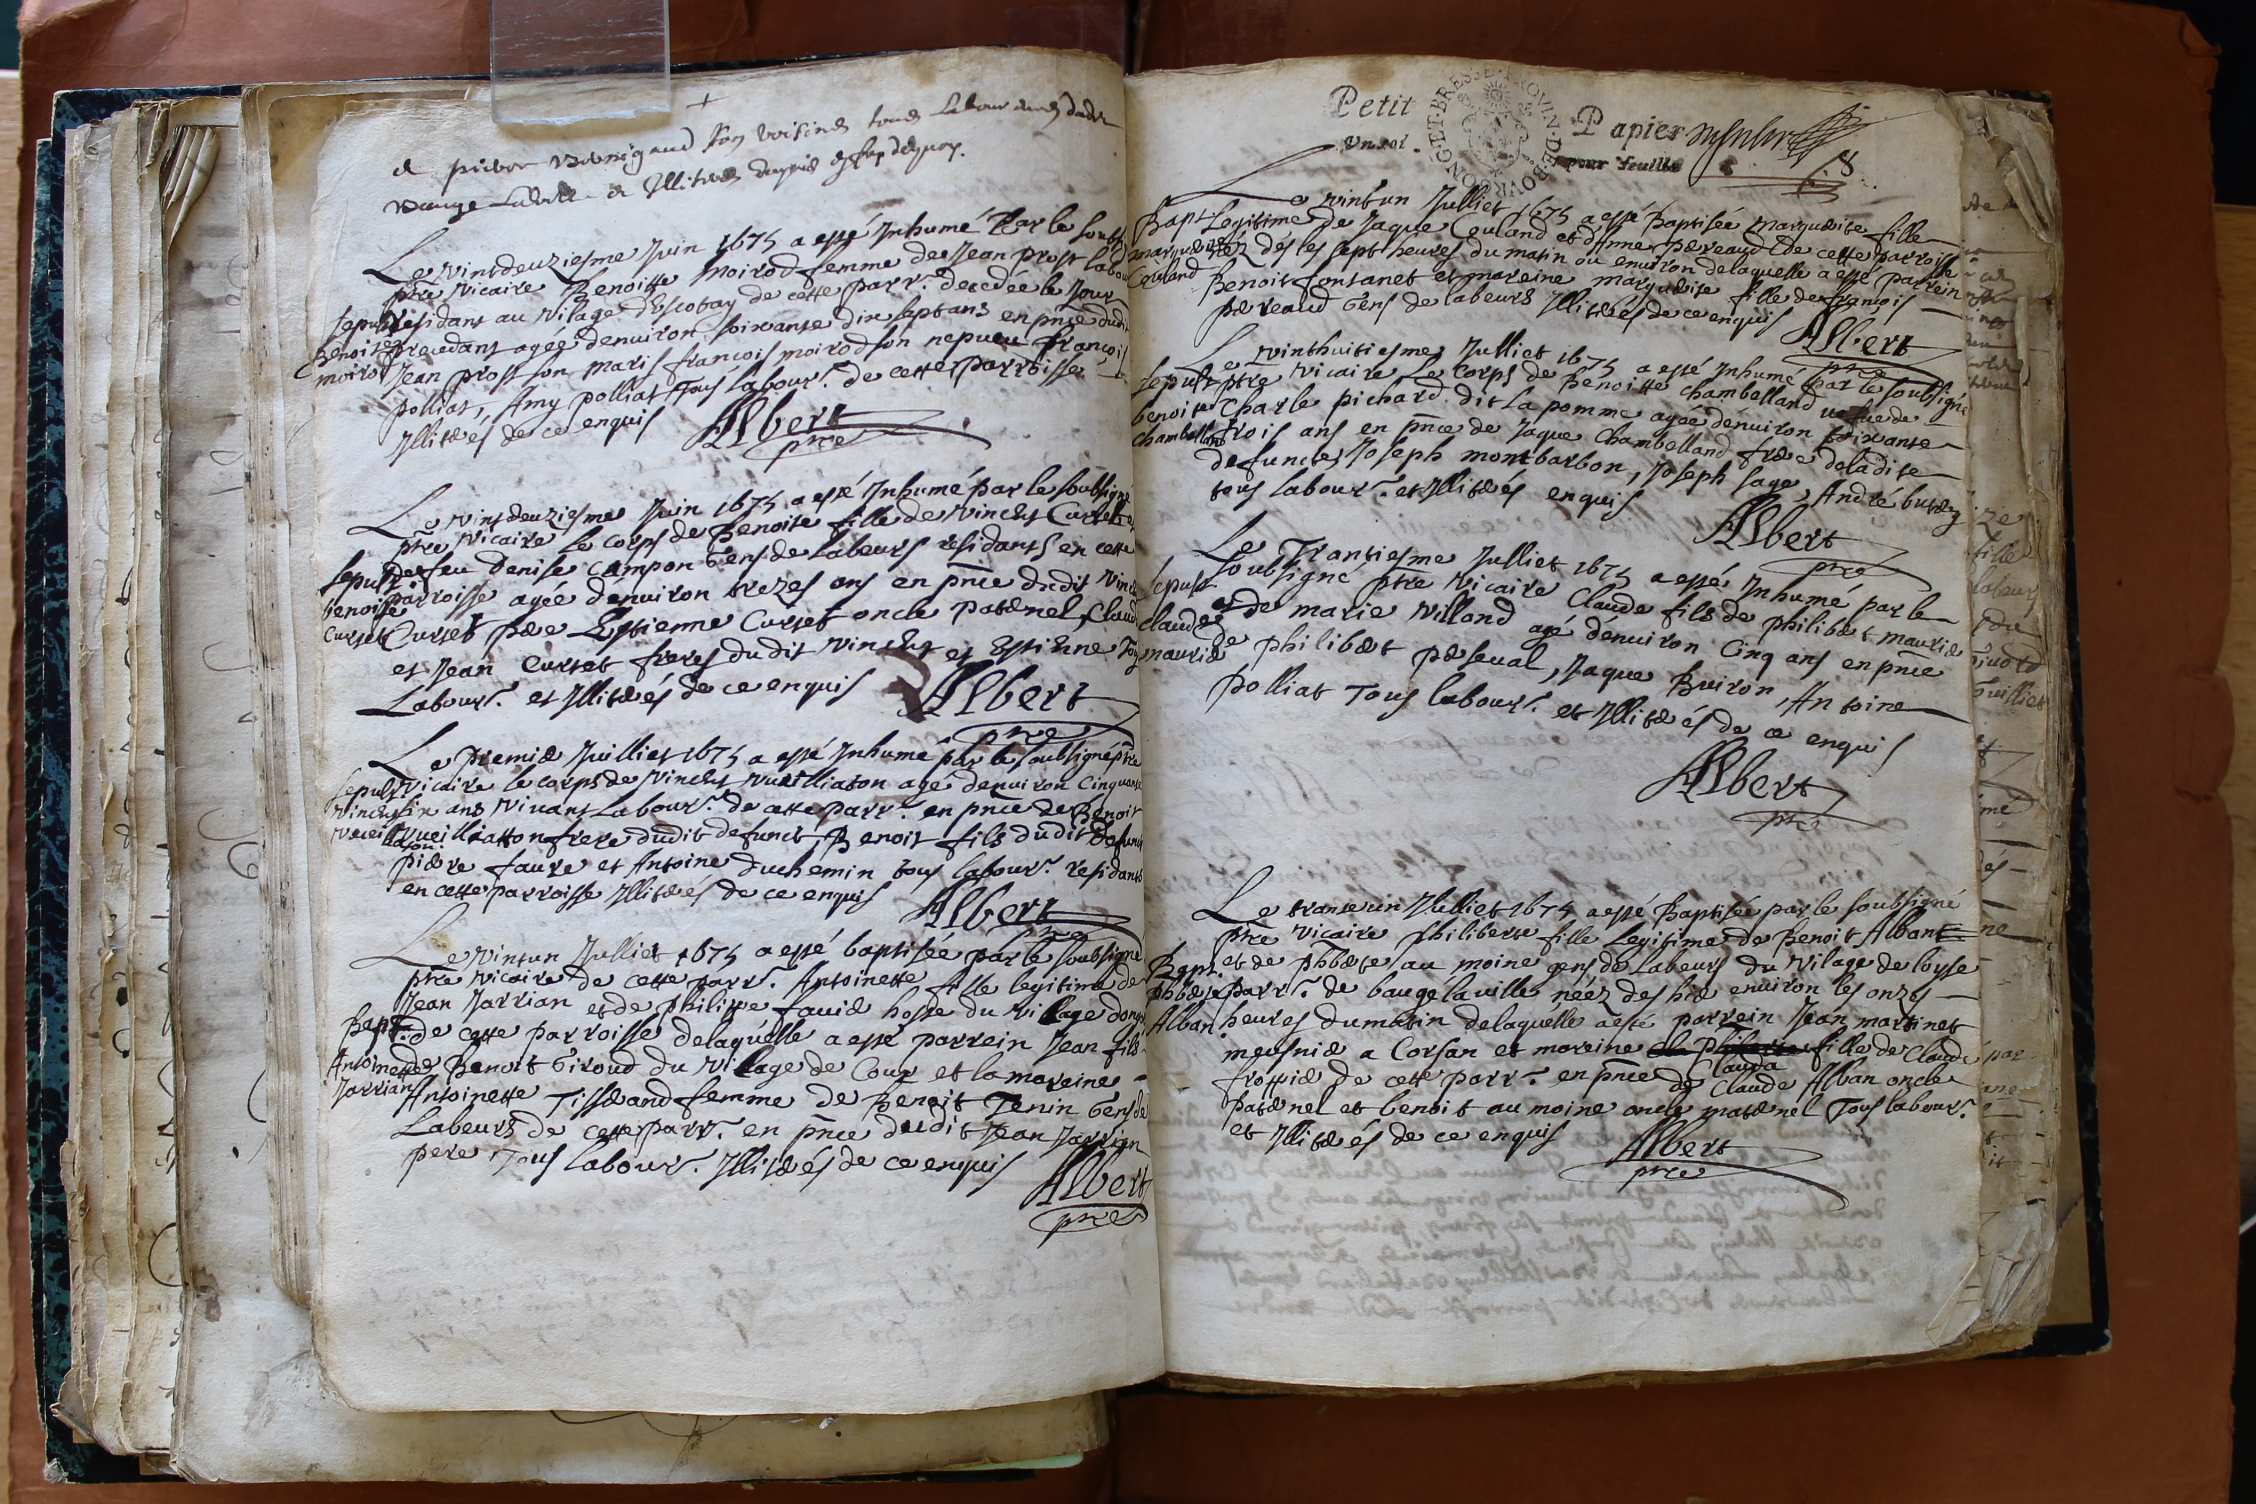 +
Le vintdeuziesme Juin 1675 a esté Inhumé Par le soubs
ptre vicaire Benoitte Moirod femme de Jean prost labou
residant au vilage d'Escotay de cette parr. decedée le Jour
precedant agéé denuiron soixante dix sept ans en pnce dudit
Jean prost son maris francois moirod son nepueu francois
polliat, Amy polliat Tous labour. de cette parroisse
Illiterés de ce enquis
Sepult
Benoitte
moirod
Albert
ptre
Le vintdeuziesme Juin 1675 a esté Inhumé par le soubsigné
ptre vicaire Le corps de Benoite fille de Vincent Curtet et
de feu denise Campon Gens de labeurs residants en cette
parroisse agéé denuiron trezes ans en pnce dudit Vincent
Curtet pere Estienne Curtet oncle paternel, Claude
et Jean Curtet freres dudit vincent et Estienne Tous
Labour. et Illiterés de ce enquis
Sepult
benoiste
Curtet
Albert
ptre
Le premier Juilliet 1675 a esté Inhumé par le soubsigné ptre
vicaire le corps de Vincent Vueilliaton agé denuiron Cinquante
six ans vivant Labour. de cette parr. en pnce de Benoit
vueilliatton frere dudit defunct, Benoit fils dudit defunct
pierre faure et Antoine duchemin tous labour. residants
en cette parroisse Illiterés de ce enquis
Sepult
Vincent
Albert
ptre
Le vintun Julliet 1675 a esté baptisée par le soubsigné
ptre vicaire de cette parr. Antoinette fille legitime de
Jean Jarrian et de philippe favier hoste du vilage
de cette parroisse delaquelle a esté parrein Jean fils
de Benoit Giroud du vilage de Cour et la mareine
Antoinette Tisserand femme de Benoit Tenin Gens de
Labeurs de cette parr. en pnce dudit Jean Jarrian
pere Tous labour. Illiterés de ce enquis
Bapt.
Antoinette
Jarrian
Albert
ptre
Petit Papier
Un sol. pour feuille
BRESSE
Le vintun Julliet 1675 a esté Baptisée Marguerite fille
Legitime de Jaque Couland et d'Anne pereaud de cette parroisse
néz dés les sept heures du matin ou enuiron delaquelle a esté parrein
Benoit fontanet et mareine marguerite fille de francois
pereaud Gens de labeurs Illiterés de ce enquis
Bapt
marguerite
Couland
Albert
ptre
Le vinthuitiesme Julliet 1675 a esté Inhumé par le soubsigné
ptre vicaire Le corps de Benoitte Chambelland vefue de
Charle pichard dit la pomme agéé dénuiron soixante
trois ans en pnce de Jaque Chambelland frere deladite
defuncte, Joseph montbarbon, Joseph sage, André
tous labour. et Illiterés enquis
Sepult
benoitte
Chambelland
Albert
ptre
Le Trantiesme Julliet 1675 a esté Inhumé par le
soubsigné ptre vicaire Claude fils de philibert maurier
et de marie villand agé dénuiron Cinq ans en pnce
de philibert perseval, Jaque Buiron, Antoine
polliat Tous labour. et Illiterés de ce enquis
Sepult
Claude
maurier
Albert
ptre
Le trante un Julliet 1675 a esté Baptisée par le soubsigné
ptre vicaire philiberte fille Legitime de Benoit Alban
et de phberte au moine gens de Labeurs du vilage de loyse
parr. de baugé la ville néez des hier enuiron les onzes
heures du matin delaquelle a esté parrein Jean martinet
meusnier a Corsan et mareine Clauda fille de Claude
frossier de cette parr. en pnce de Claude Alban oncle
paternel et benoit au moine oncle maternel Tous labour.
et Illiterés de ce enquis
Bapt.
phberte
Alban
Albert
ptre